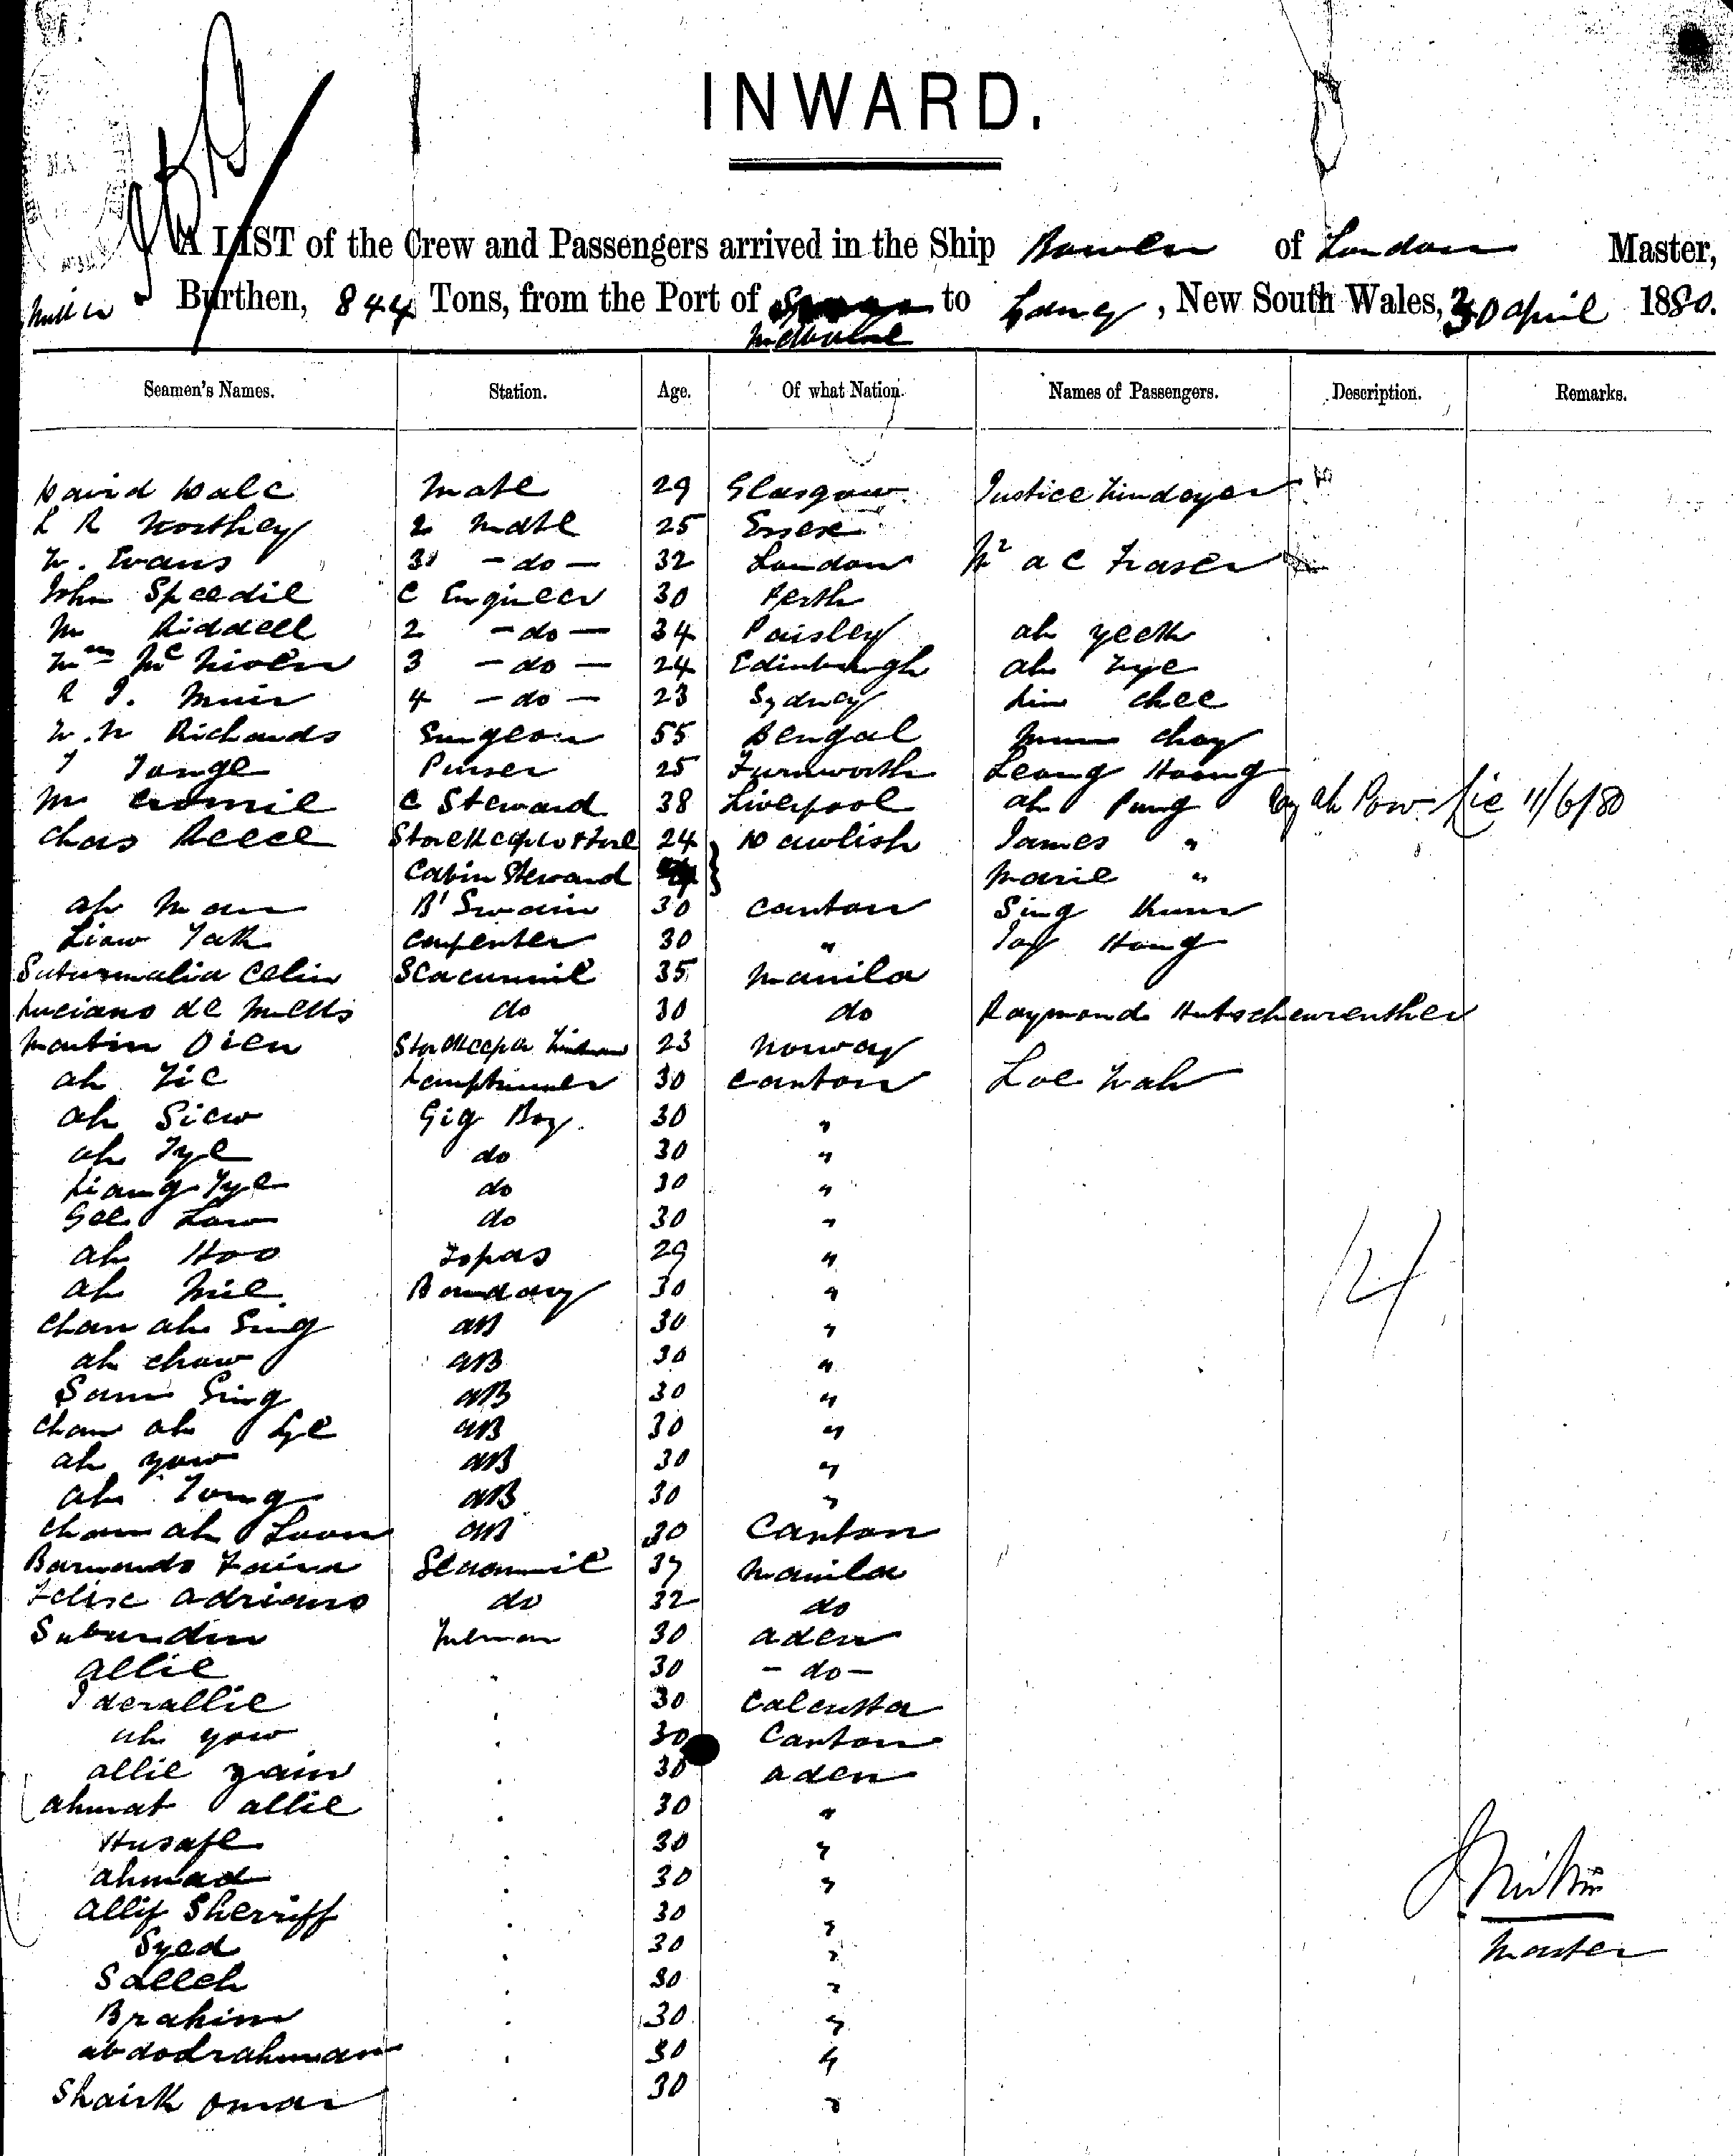 INWARD.
A LIST of the Crew and Passengers arrived in the Ship Bowen of London Master,
Burthen, 844 Tons, from the Port of to Sydney, New South Wales, 30 April 1880.
Melbourne
Seamen's Names. Station. Age. Of what Nation. Names of Passengers. Description. Remarks.
David Dale Mate 29 Glasgow Justice Windeyer
L R Northey 2 Mate 25 Essex
W. Evans 3 - do - 32 London Mr A C Fraser
John Speedie C Engineer 30 Perth
M Riddell 2 - do - 34 Paisley Ah Yeek
Wm McNiven 3 - do - 24 Edinburgh Ah
R J. Muir 4 - do - 23 Sydney Lim Chee
W. W Richards Surgeon 55 Bengal Mum Choy
T Tonge Purser 25 Farnworth Leong Hoong
M Cromie C Steward 38 Liverpool Ah Pung Ah Pow 11/6/80
Chas Reece Storekeeper 24 Dawlish James "
Cabin Steward Marie "
Ah Man B' Swain 30 Canton Sing Kum
Liaw Yak Carpenter 30 " Tay Hong
Celin Seacunnie 35 Manila
Luciano de Mells do 30 do Raymond Hutschewrenther
Martin Oien Storekeeper 23 Norway
Ah Tie Lamptrimmer 30 Canton Loe Wah
Ah Siew Gig Boy. 30 "
Ah Tye do 30 "
Liang Tye do 30 "
Gee Law do 30 "
Ah Hoo Topas 29 "
Ah Mie 30 "
Chan Ah Sing AB 30 "
Ah Chaw AB 30 "
Sam Sing AB 30 "
Chan Ah Lye AB 30 "
Ah Yaw AB 30 "
Ah Tong AB 30 "
Chan Ah Loon AB 30 Canton
Seacunnie 37 Manila
Felise Adriano do 32 do
Fireman 30 Aden
Allie . 30 - do -
Iderallie . 30 Calcutta
Ah Yow . 30 Canton
Allie Zain . 30 Aden
Ahmat Allie . 30 "
Husafe . 30 "
Ahmad . 30 "
Ally Sherriff . 30 "
Syed . 30 " Master
Salleh . 30 "
Brahim . 30 "
Abdodrahman . 30 "
Shaik Omar . 30 "